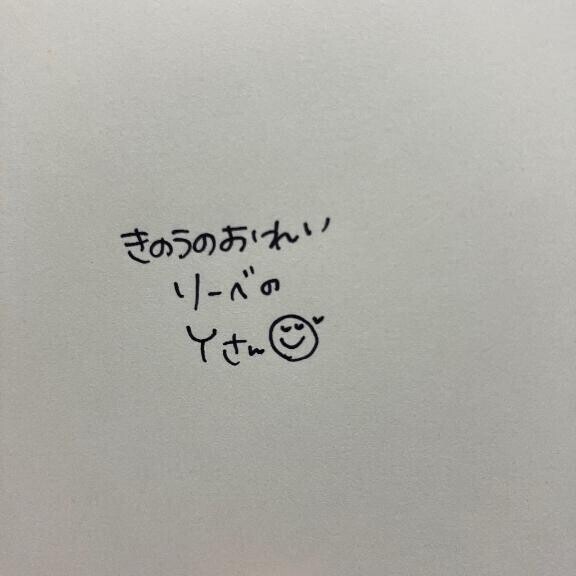 きのうのおれい
リーベの
Yさん